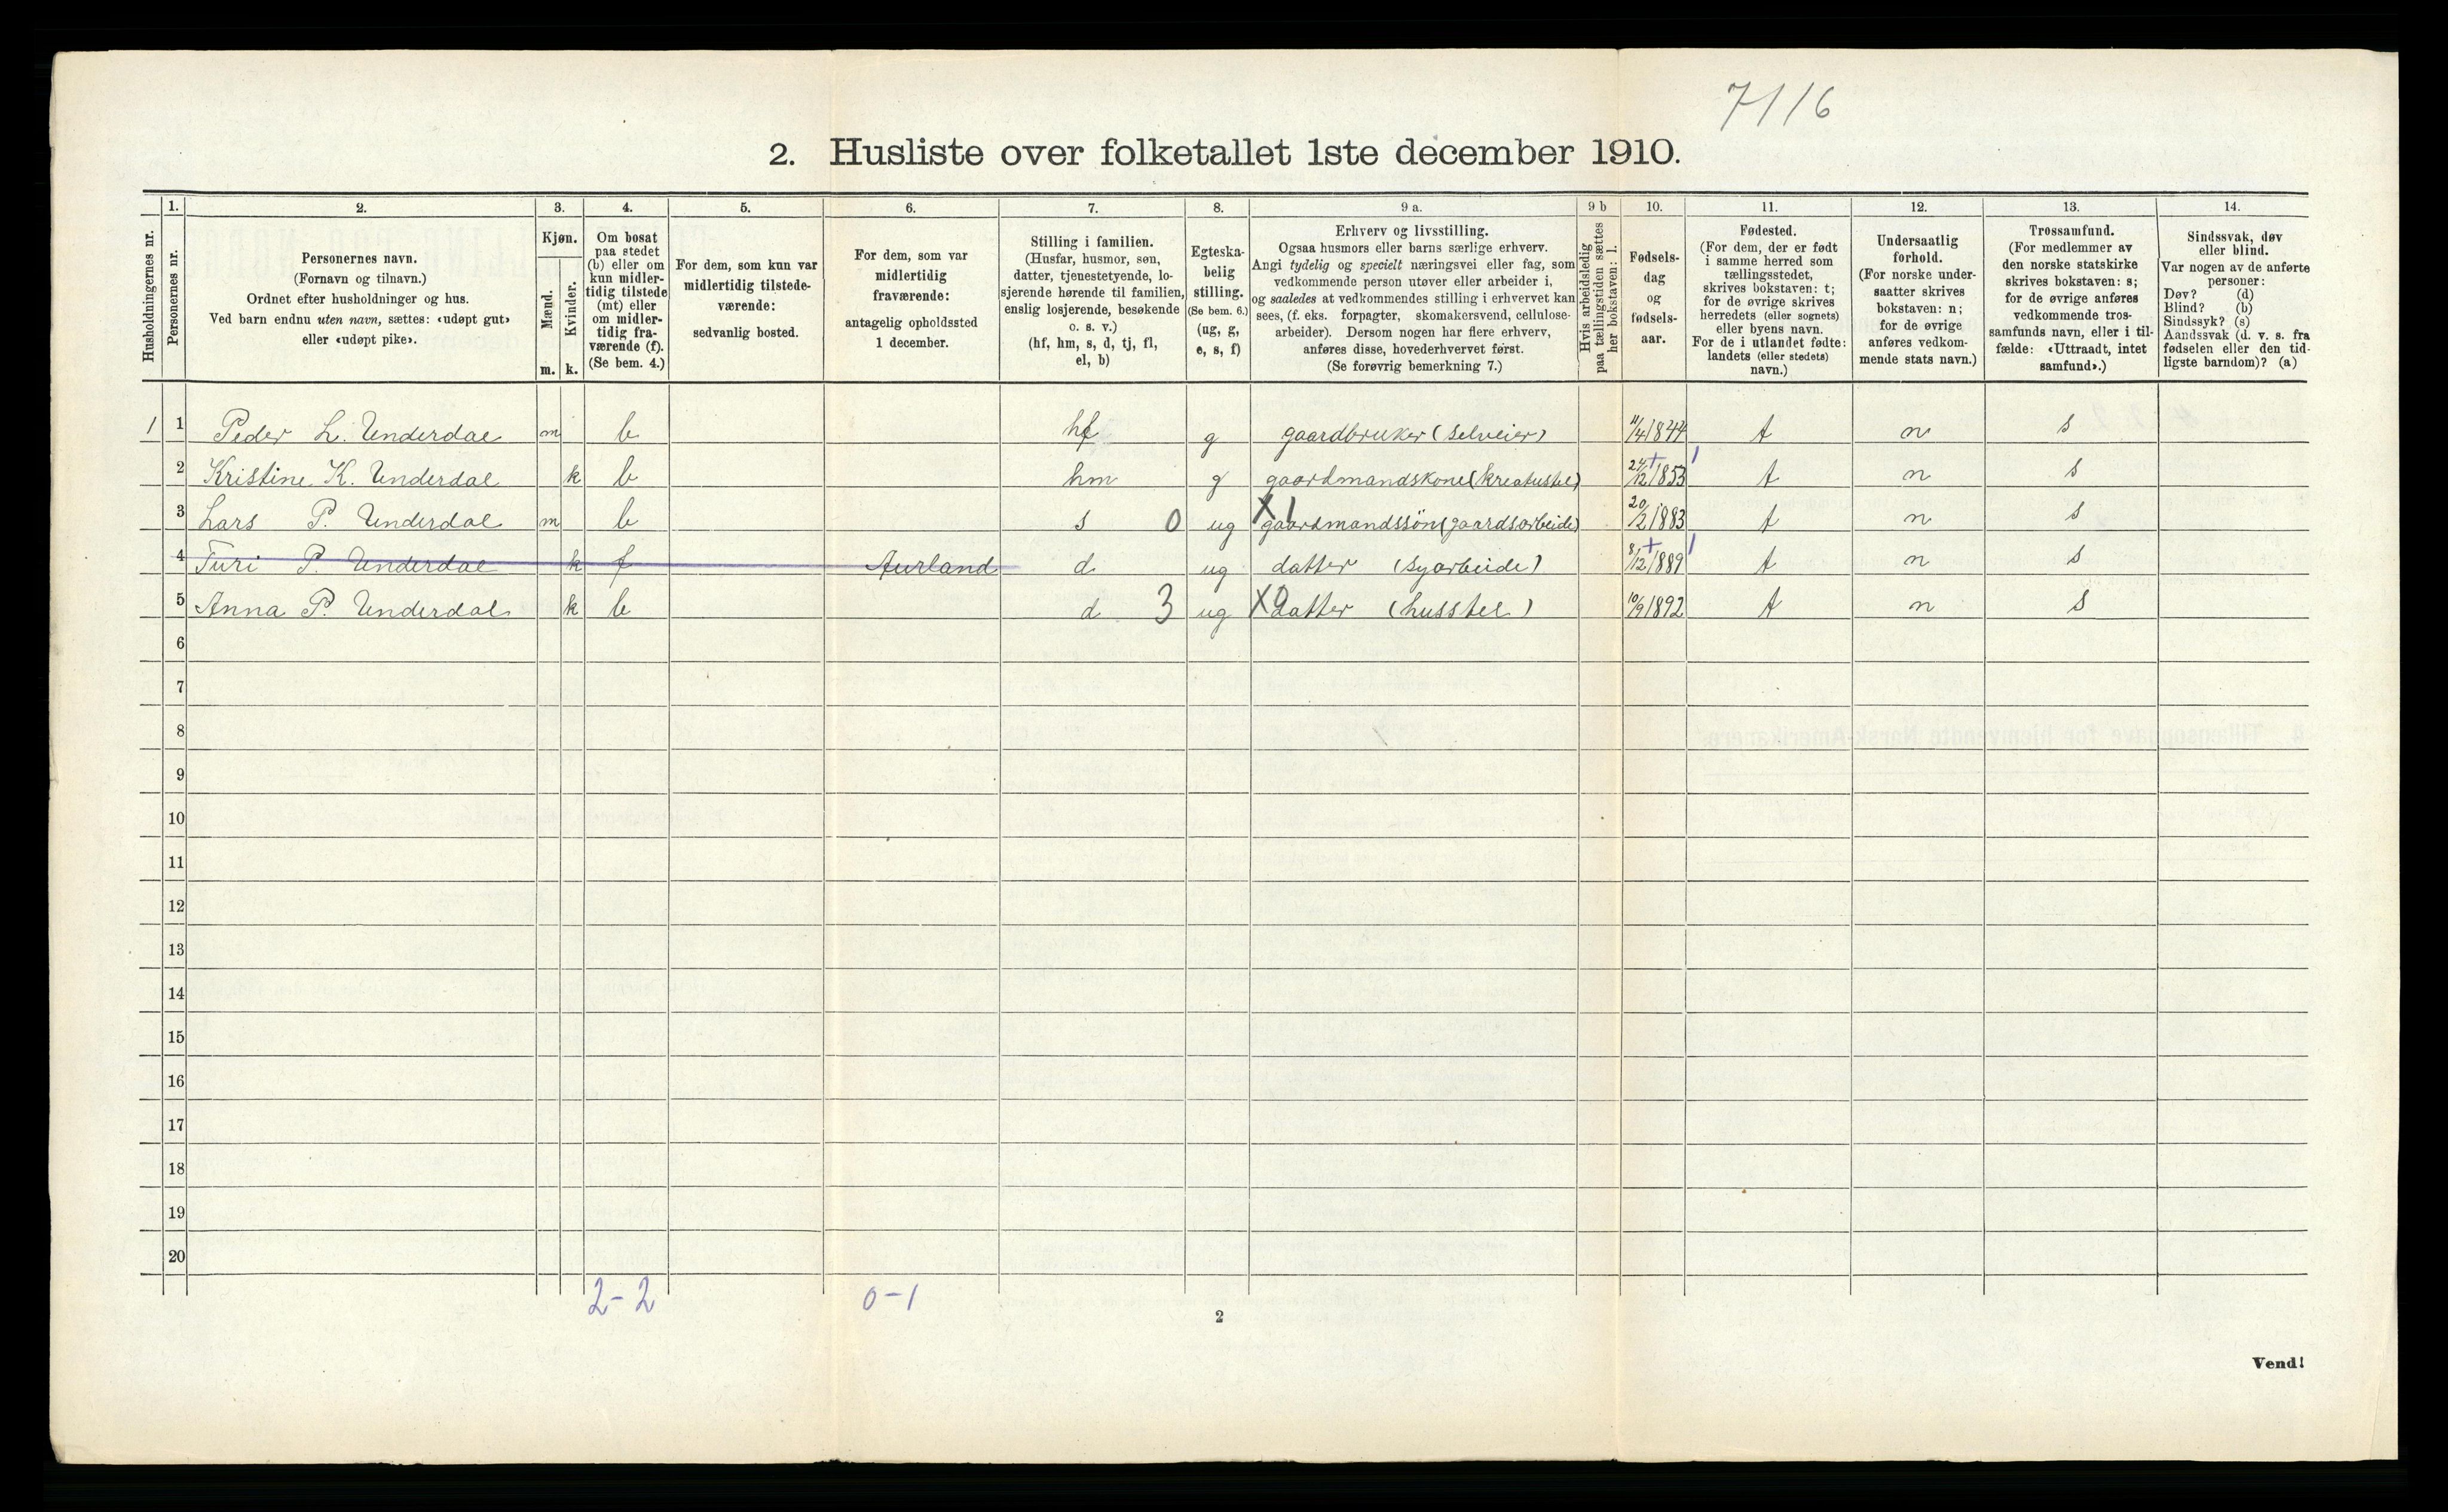 7116
2. Husliste over folketallet 1ste december 1910.
1. 2. 3. 4. 5. 6. 7. 8. 9 a. 9 b 10. 11. 12. 13. 14.
Husholdningernes nr.
Personernes nr.
Personernes navn.
(Fornavn og tilnavn.)
Ordnet efter husholdninger og hus.
Ved barn endnu uten navn, sættes: «udøpt gut»
eller «udøpt pike».
Kjøn.
Mænd.
Kvinder.
m. k.
Om bosat
paa stedet
(b) eller om
kun midler-
tidig tilstede
(mt) eller
om midler-
tidig fra-
værende (f).
(Se bem. 4.)
For dem, som kun var
midlertidig tilstede-
værende:
sedvanlig bosted.
For dem, som var
midlertidig
fraværende:
antagelig opholdssted
1 december.
Stilling i familien.
(Husfar, husmor, søn,
datter, tjenestetyende, lo-
sjerende hørende til familien,
enslig losjerende, besøkende
o. s. v.)
(hf, hm, s, d, tj, fl,
el, b)
Egteska-
belig
stilling.
(Se bem. 6.)
(ug, g,
e, s, f)
Erhverv og livsstilling.
Ogsaa husmors eller barns særlige erhverv.
Angi tydelig og specielt næringsvei eller fag, som
vedkommende person utøver eller arbeider i,
og saaledes at vedkommendes stilling i erhvervet kan
sees, (f. eks. forpagter, skomakersvend, cellulose-
arbeider). Dersom nogen har flere erhverv,
anføres disse, hovederhvervet først.
(Se forøvrig bemerkning 7.)
Hvis arbeidsledig
paa tællingstiden sættes
her bokstaven: l.
Fødsels-
dag
og
fødsels-
aar.
Fødested.
(For dem, der er født
i samme herred som
tællingsstedet,
skrives bokstaven: t;
for de øvrige skrives
herredets (eller sognets)
eller byens navn.
For de i utlandet fødte:
landets (eller stedets)
navn.)
Undersaatlig
forhold.
(For norske under-
saatter skrives
bokstaven: n;
for de øvrige
anføres vedkom-
mende stats navn.)
Trossamfund.
(For medlemmer av
den norske statskirke
skrives bokstaven: s;
for de øvrige anføres
vedkommende tros-
samfunds navn, eller i til-
fælde: «Uttraadt, intet
samfund».)
Sindssvak, døv
eller blind.
Var nogen av de anførte
personer:
Døv? (d)
Blind? (b)
Sindssyk? (s)
Aandssvak (d. v. s. fra
fødselen eller den tid-
ligste barndom)? (a)
1 1 Peder L. Underdal m b hf g gaardbruker (selveier) 11/4 1844 t n s
2 Kristine K. Underdal k b hm g gaardmandskone (kreaturstel) 24/12 1853 t n s
3 Lars P. Underdal m b s 0 ug X 1 gaardmandssön (gaardsarbeide) 20/2 1883 t n s
4 Turi P. Underdal k f Aurland d ug datter (syarbeide) 8/12 1889 t n s
5 Anna P. Underdal k b d 3 ug X0 datter (husstel) 10/9 1892 t n s
6
7
8
9
10
11
12
13
14
15
16
17
18
19
20
2-2 0-1
2
Vend!